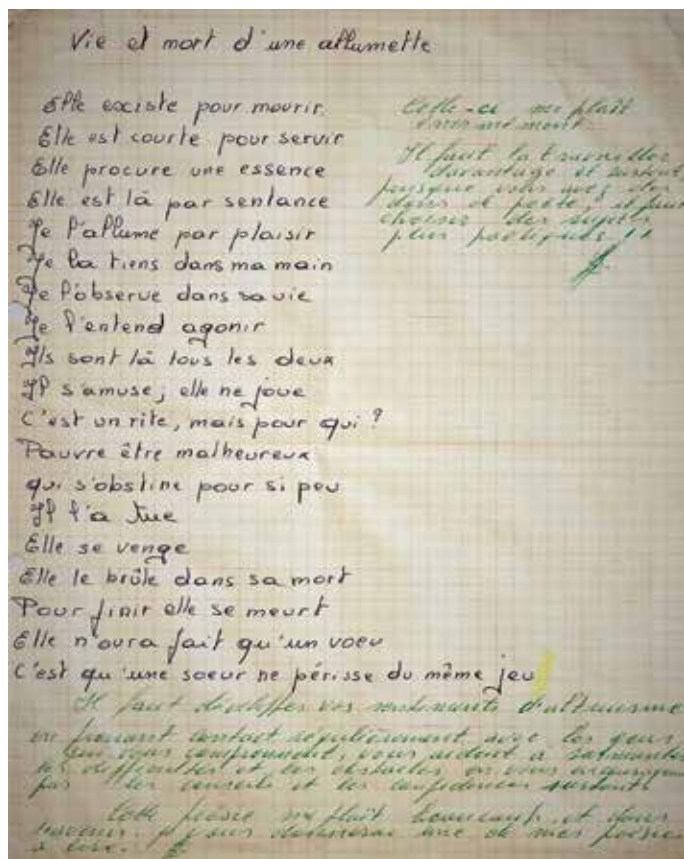 Vie et mort d'une allumette
Elle existe pour mourir.
Elle est courte pour servir
Elle procure une essence
Elle est là par sentance
Je l'allume par plaisir
Je la tiens dans ma main
Je l'observe dans sa vie
Je l'entend agonir
Ils sont là tous les deux
Il s'amuse, elle ne joue
C'est un rite, mais pour qui ?
Pauvre être malheureux
qui s'obstine pour si peu
Il l'a tue
Elle se venge
Elle le brûle dans sa mort
Pour finir elle se meurt
Elle n'aura fait qu'un voeu
C'est qu'une soeur ne périsse du même jeu
Celle-ci me plaît
énormément
Il faut la travailler
davantage et surtout,
puisque vous avez des
dons de poète, il faut
choisir des sujets
plus poétiques !!
Il faut développer vos sentiments d'altruisme
en prenant contact régulièrement avec les gens
qui vous comprennent, vous aident à surmonter
les difficultés et les obstacles
par les conseils et les confidences surtout
Cette poésie me plaît beaucoup et
une de mes poésies
à lire.